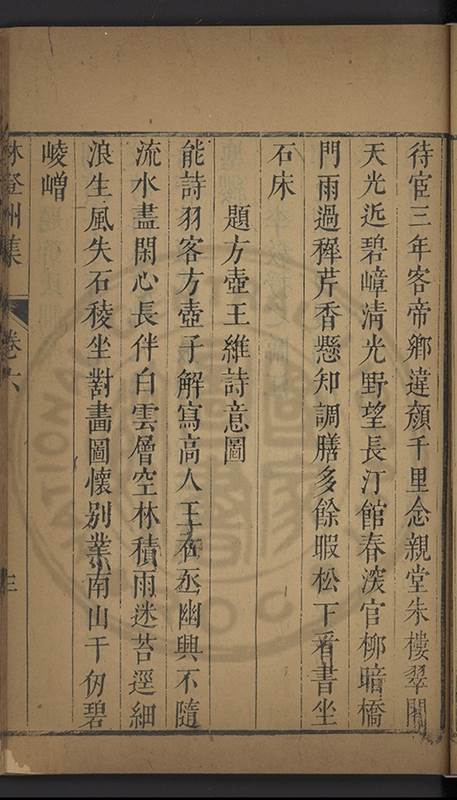 待宦三年客帝鄉違顏千里念親堂朱樓翠閣
天光近碧嶂清光野望長汀館春深官柳暗橋
門雨過稺芹香懸知調膳多餘暇松下看書坐
石床
題方壺王維詩意圖
能詩羽客方壺子解寫高人王右丞幽興不隨
流水盡閑心長伴白雲層空林積雨迷苔逕細
浪生風失石稜坐對畵圖懷别業南山千仞碧
崚嶒
林登州集
卷六
三